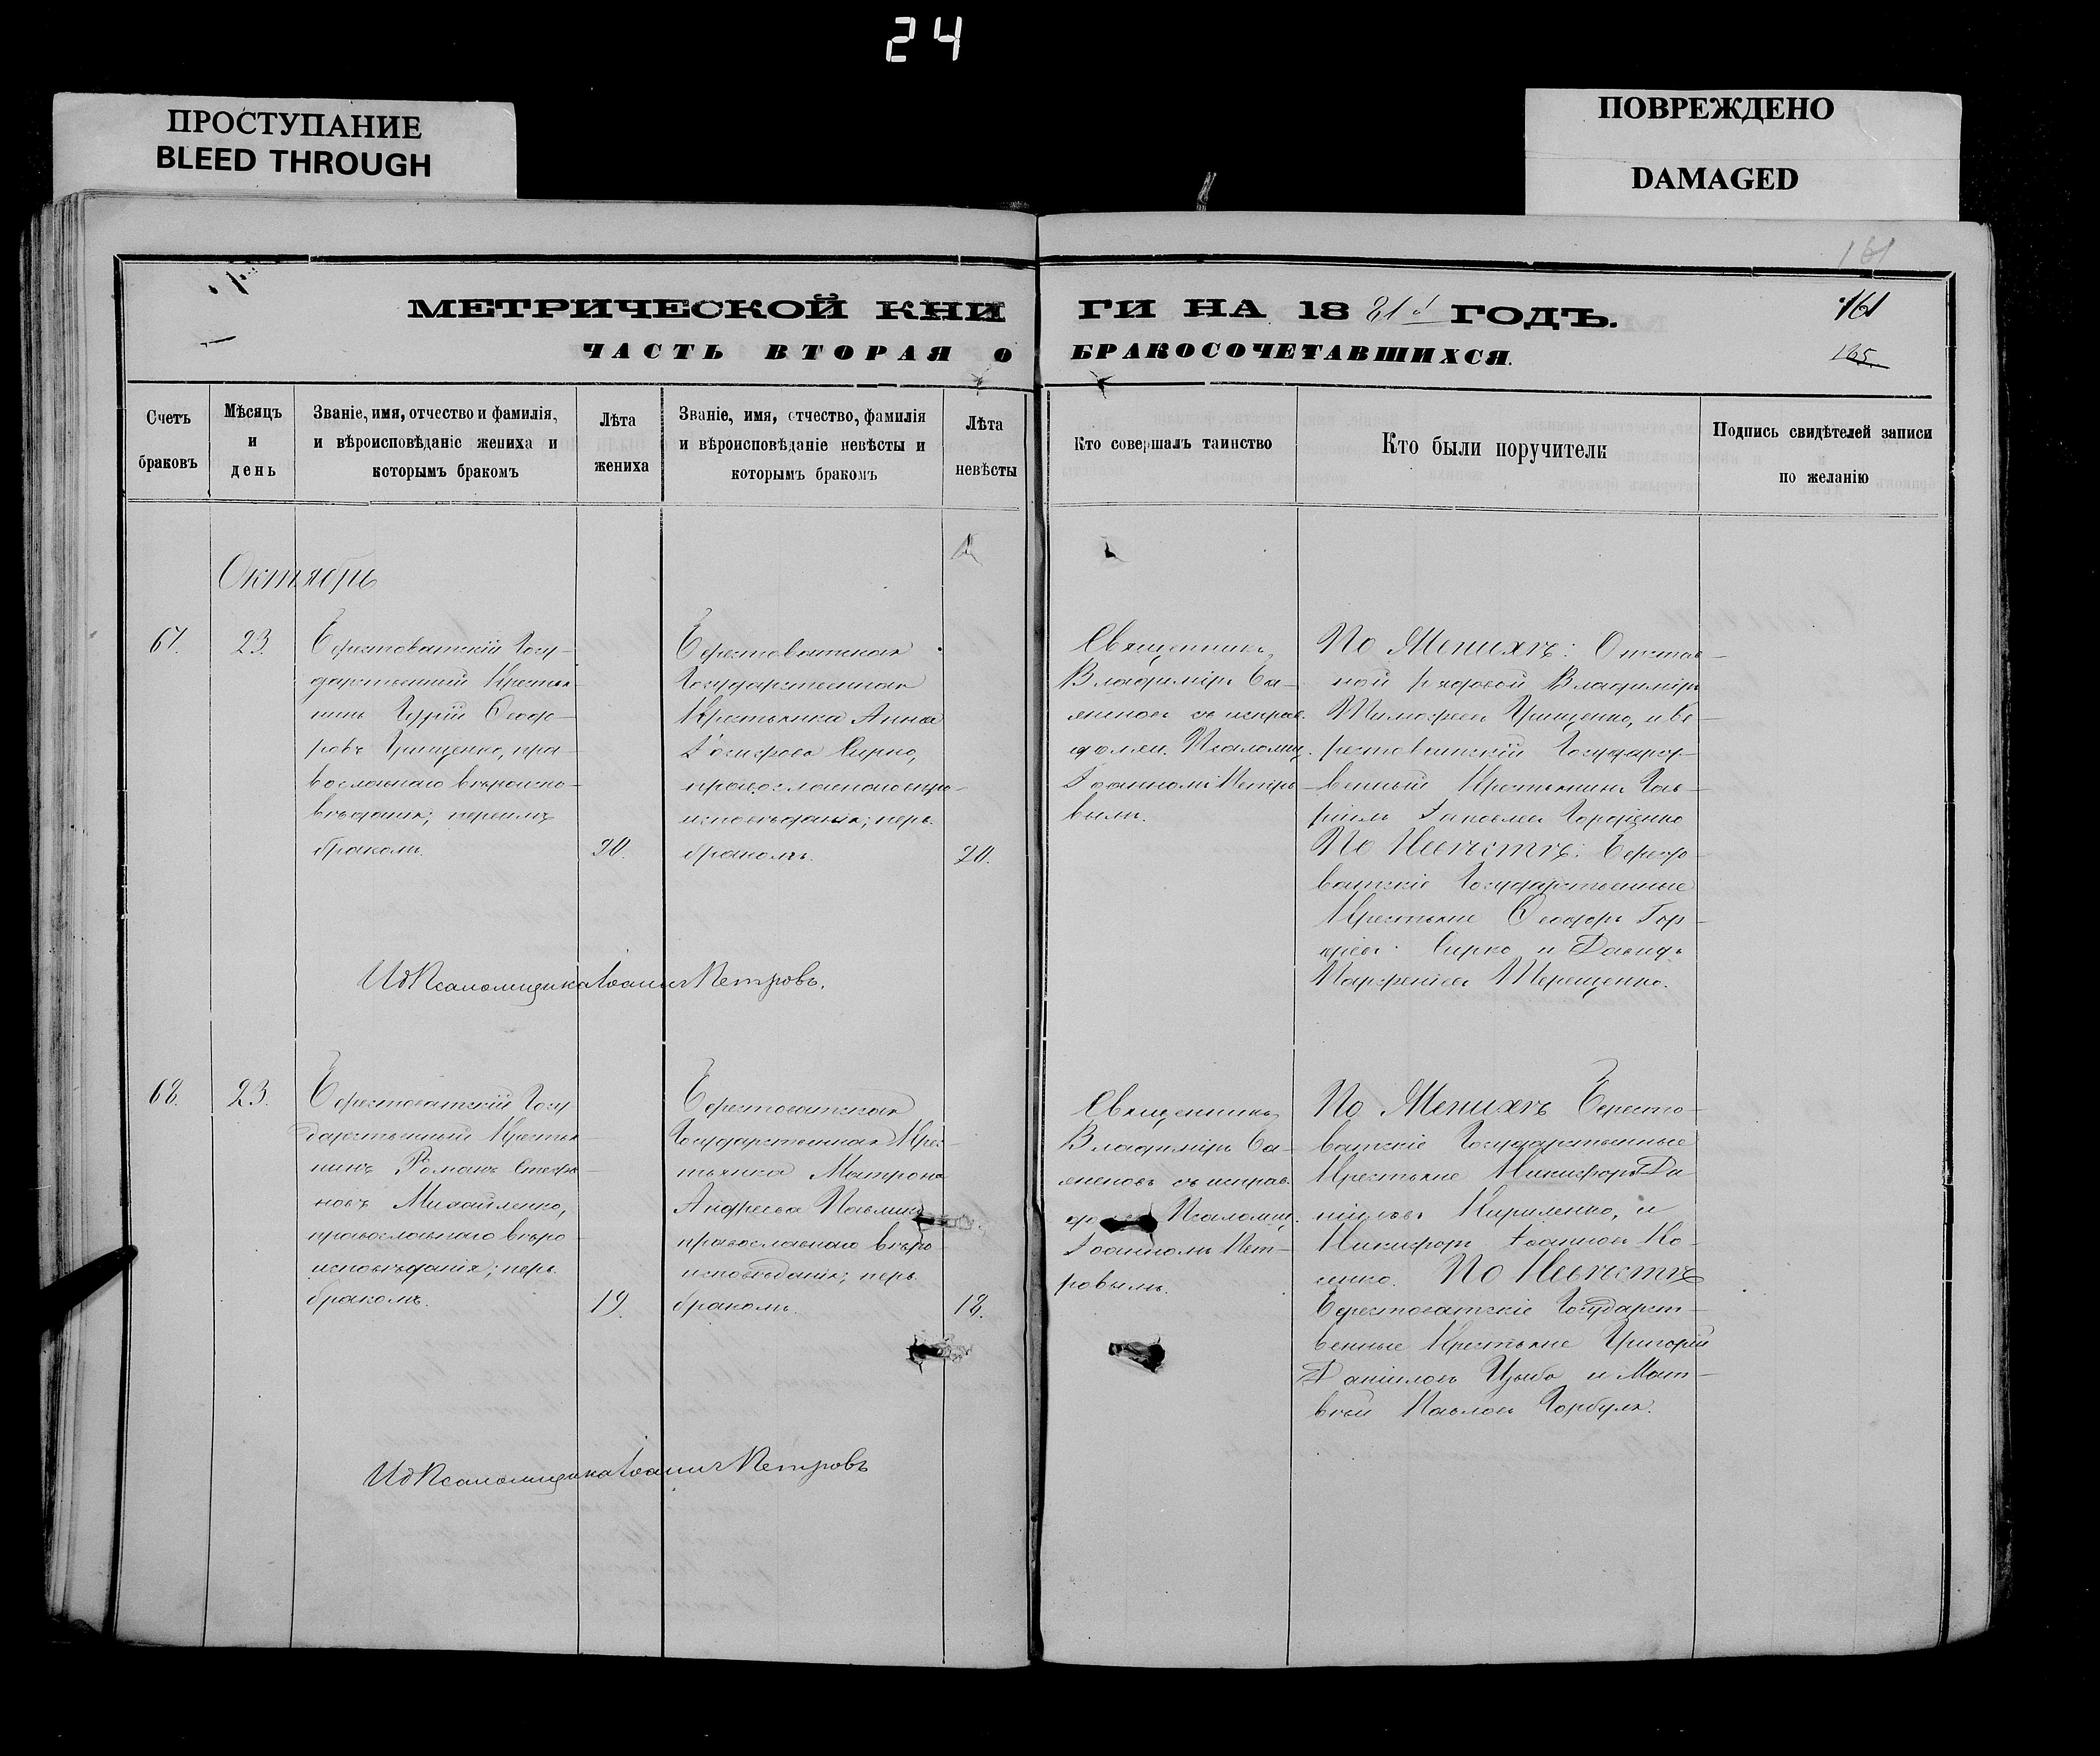 24
ПРОСТУПАНИЕ
BLEED THROUGH
ПОВРЕЖДЕНО
DAMAGED
161
МЕТРИЧЕСКОЙ КНИ
ГИ НА 18 81 ГОДЪ.
161
ЧАСТЬ ВТОРАЯ О
БРАКОСОЧЕТАВШИХСЯ.
165.
Счетъ
браковъ
Мѣсяцъ
и
день
Званіе, имя, отчество и фамилія,
и вѣроисповѣданіе жениха и
которымъ бракомъ
Лѣта
жениха
Званіе, имя, отчество, фамилія
и вѣроисповѣданіе невѣсты и
которымъ бракомъ
Лѣта
невѣсты
Кто совершалъ таинство
Кто были поручители
Подпись свидѣтелей записи
по желанію
Октябрь
67.
23.
Берестоватскій Госу-
дарственный Крестья-
нинъ Гурій Ѳеодо-
ровъ Грищенко, пра-
вославнаго вѣроиспо-
вѣданія; первымъ
бракомъ.
20.
Берестоватская
Государственная
Крестьянка Анна
Сирко,
православнаго вѣро-
исповѣданія; перв.
бракомъ.
20.
Священникъ
Владиміръ Ба-
женовъ съ исправ.
должн. Псаломщ.
Іоанномъ Петро-
вымъ.
По Женихѣ: Отстав-
ной рядовой Владиміръ
Тимофеевъ Грищенко, и Бе-
рестоватскій Государст-
венный Крестьянинъ Гав-
ріилъ Іаковлевъ
По Невѣстѣ: Бересто-
ватскіе Государственные
Крестьяне Ѳеодоръ
Сирко и Давидъ
Парфеніевъ Терещенко.
И д Псаломщика Іоаннъ Петровъ.
68.
23.
Берестоватскій Госу
дарственный Крестья-
нинъ Романъ Стефа-
новъ Михайленко,
православнаго вѣро-
исповѣданія; перв.
бракомъ.
19.
Берестоватская
Государственная Крес-
тьянка Матрона
Андреева
православнаго вѣро-
исповѣданія; перв.
бракомъ.
18.
Священникъ
Владиміръ Ба-
женовъ съ исправ.
Псаломщ.
Іоанномъ Пет-
ровымъ.
По Женихѣ Бересто-
ватскіе Государственные
Крестьяне Никифоръ Да
ніиловъ Кириленко, и
Никифоръ Іоанновъ Ко-
ленко. По Невѣстѣ
Берестоватскіе Государст-
венные Крестьяне Григорій
Даніиловъ Цыба и Мат-
вѣй Павловъ Горбуля.
И д Псаломщика Іоаннъ Петровъ